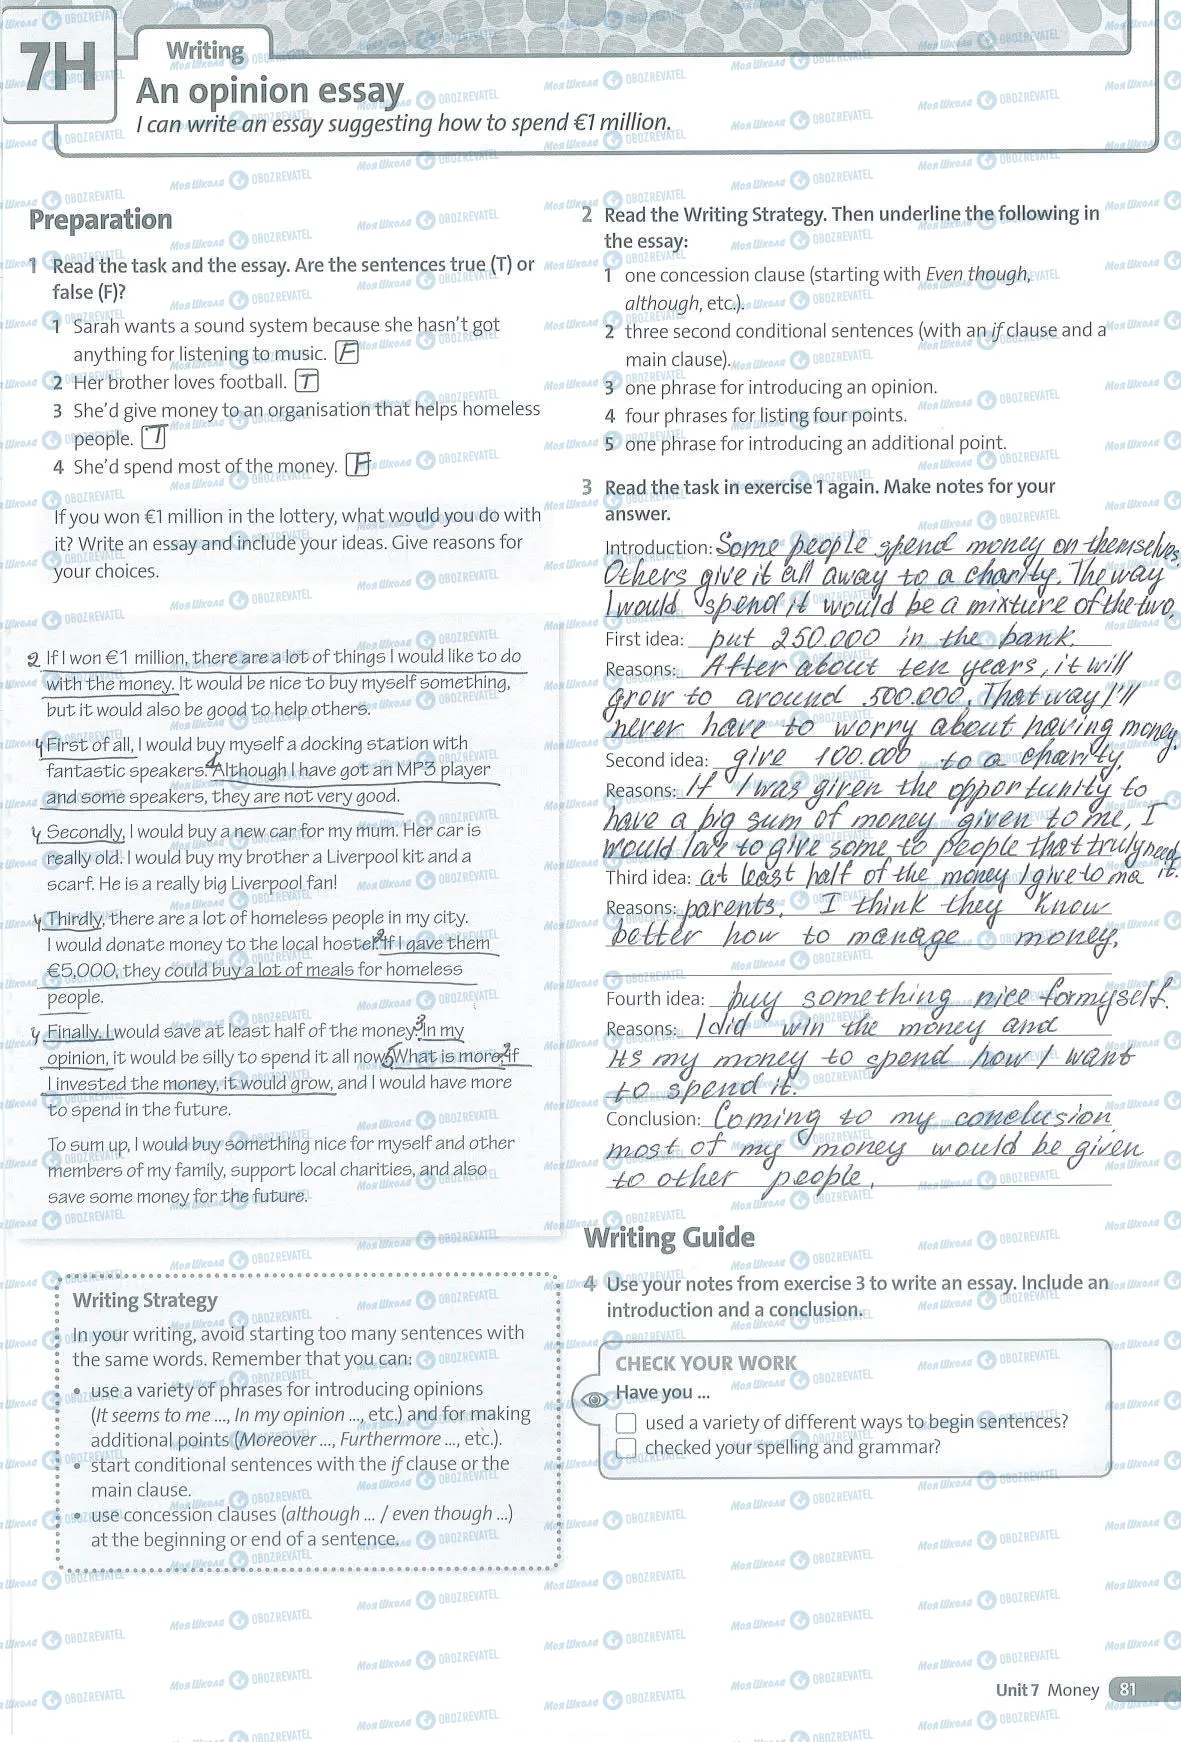 7H
Writing
An opinion essay
I can write an essay suggesting how to spend €1 million.
Preparation
1 Read the task and the essay. Are the sentences true (T) or
false (F)?
1 Sarah wants a sound system because she hasn't got
anything for listening to music. F
2 Her brother loves football. T
3 She'd give money to an organisation that helps homeless
people. T
4 She'd spend most of the money. F
If you won €1 million in the lottery, what would you do with
it? Write an essay and include your ideas. Give reasons for
your choices.
2 If I won €1 million, there are a lot of things I would like to do
with the money. It would be nice to buy myself something,
but it would also be good to help others.
4 First of all, I would buy myself a docking station with
fantastic speakers. Although I have got an MP3 player
and some speakers, they are not very good.
4 Secondly, I would buy a new car for my mum. Her car is
really old. I would buy my brother a Liverpool kit and a
scarf. He is a really big Liverpool fan!
4 Thirdly, there are a lot of homeless people in my city.
I would donate money to the local hostel. 2 If I gave them
€5,000, they could buy a lot of meals for homeless
people.
4 Finally, I would save at least half of the money. 3 In my
opinion, it would be silly to spend it all now. 5 What is more, 2 if
I invested the money, it would grow, and I would have more
to spend in the future.
To sum up, I would buy something nice for myself and other
members of my family, support local charities, and also
save some money for the future.
Writing Strategy
In your writing, avoid starting too many sentences with
the same words. Remember that you can:
• use a variety of phrases for introducing opinions
(It seems to me ..., In my opinion ..., etc.) and for making
additional points (Moreover ..., Furthermore ..., etc.).
• start conditional sentences with the if clause or the
main clause.
• use concession clauses (although ... / even though ...)
at the beginning or end of a sentence.
2 Read the Writing Strategy. Then underline the following in
the essay:
1 one concession clause (starting with Even though,
although, etc.).
2 three second conditional sentences (with an if clause and a
main clause).
3 one phrase for introducing an opinion.
4 four phrases for listing four points.
5 one phrase for introducing an additional point.
3 Read the task in exercise 1 again. Make notes for your
answer.
Introduction: Some people spend money on themselves.
Others give it all away to a charity. The way
I would spend it would be a mixture of the two.
First idea: put 250.000 in the bank.
Reasons: After about ten years, it will
grow to around 500.000. That way I'll
never have to worry about having money.
Second idea: give 100.000 to a charity.
Reasons: If I was given the opportunity to
have a big sum of money given to me, I
would love to give some to people that truly need
it.
Third idea: at least half of the money I give to ma
Reasons: parents. I think they know
better how to manage money.
Fourth idea: buy something nice for myself.
Reasons: I did win the money and
its my money to spend how I want
to spend it.
Conclusion: Coming to my conclusion,
most of my money would be given
to other people.
Writing Guide
4 Use your notes from exercise 3 to write an essay. Include an
introduction and a conclusion.
CHECK YOUR WORK
Have you ...
used a variety of different ways to begin sentences?
checked your spelling and grammar?
Unit 7 Money 81
Моя Школа OBOZREVATEL